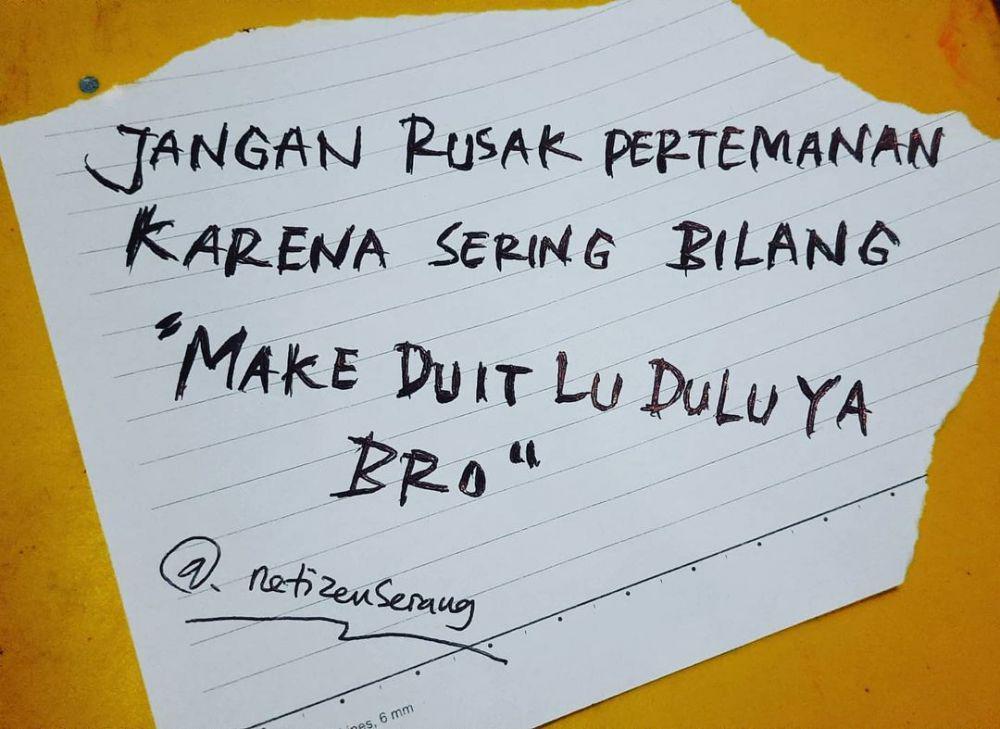 JANGAN RUSAK PERTEMANAN
KARENA SERING BILANG
"MAKE DUIT LU DULU YA
BRO"
@. netizenserang
ines, 6 mm